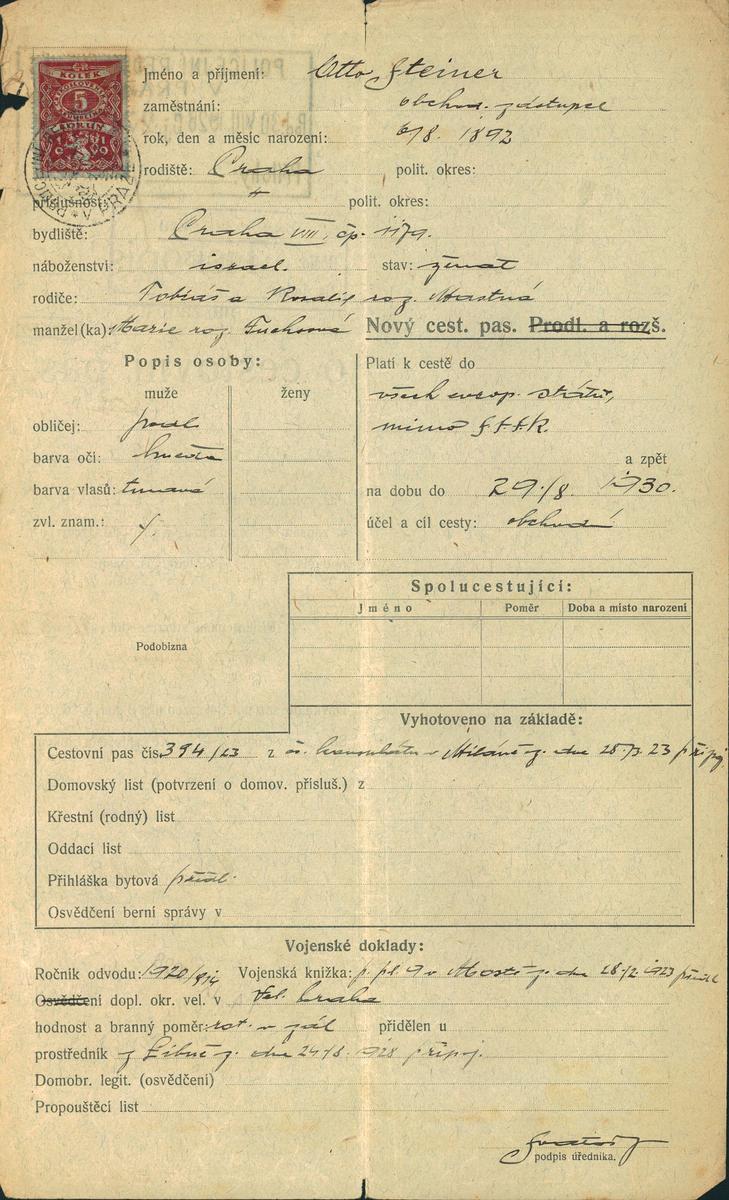 KOLEK
5
KORUN
V PRAZE
Jméno a příjmení: Otto Steiner
zaměstnání: obchod. zástupce
rok, den a měsíc narození: 6/8. 1892
rodiště: Praha polit. okres:
příslušnost: " polit. okres:
bydliště: Praha VIII, čp. 1179.
náboženství: israel. stav: ženat
rodiče: Tobiáš a Rosalie roz. Mastná
manžel(ka): Marie roz. Fuchsová Nový cest. pas. Prodl. a rozš.
Popis osoby:
muže ženy
obličej: podl
barva očí: hnědá
barva vlasů: tmavá
zvl. znam.:
Platí k cestě do
všech evrop. států,
mimo
a zpět
na dobu do 29./8. 1930.
účel a cíl cesty: obchodní
Spolucestující:
Jméno Poměr Doba a místo narození
Podobizna
Vyhotoveno na základě:
Cestovní pas čís. 394/23 z čs. konsulátu v Miláně z. dne 28./3. 23 připoj.
Domovský list (potvrzení o domov. přísluš.) z
Křestní (rodný) list
Oddací list
Přihláška bytová předl.
Osvědčení berní správy v
Vojenské doklady:
Ročník odvodu: 1920/914 Vojenská knížka: p. pl. 9 v Mostě z. dne 28./2. 1923 předl
Osvědčení dopl. okr. vel. v Praha
hodnost a branný poměr: rot. v zál přidělen u
prostředník z Libně z. dne 24/8. 1928 připoj.
Domobr. legit. (osvědčení)
Propouštěcí list
podpis úředníka.